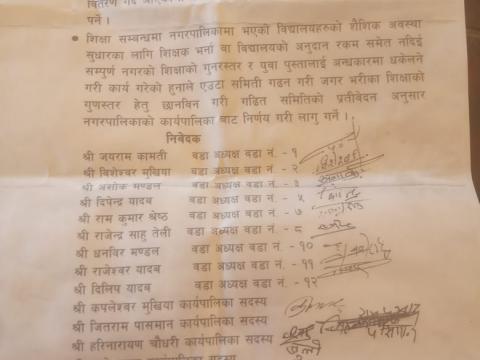 पर्ने ।
• शिक्षा सम्बन्धमा नगरपालिकामा भएकी विद्यालयहरुको शैक्षिक अवस्था
सुधारका लागि शिक्षक भर्ना वा विद्यालयको अनुदान रकम समेत नदिई
सम्पुर्ण नगरको शिक्षाको गुनरस्तर र युवा पुस्तालाई अन्धकारमा धकेलने
गरी कार्य गरेको हुनाले एउटा समिती गठन गरी जगर भरीका शिक्षाको
गुणस्तर हेतु छानविन गरी गढित समितिको प्रतीवेदन अनुसार
नगरपालिकाको कार्यपालिका बाट निर्णय गरी लागु गर्ने ।
निवेदक
श्री जयराम कामती वडा अध्यक्ष वडा नं. - १
श्री विशेश्वर मुखिया वडा अध्यक्ष वडा नं. - २
श्री असोक मण्डल वडा अध्यक्ष वडा नं. - ३
श्री दिपेन्द्र यादव वडा अध्यक्ष वडा नं. - ५
श्री राम कुमार श्रेष्ठ वडा अध्यक्ष वडा नं. - ७
श्री राजेन्द्र साहु तेली वडा अध्यक्ष वडा नं. - ८
श्री धनविर मण्डल वडा अध्यक्ष वडा नं. - १०
श्री राजेश्वर यादब वडा अध्यक्ष वडा नं. - ११
श्री दिलिप यादब वडा अध्यक्ष वडा नं. - १२
श्री कपलेश्वर मुखिया कार्यपालिका सदस्य
श्री जितराम पासमान कार्यपालिका सदस्य
श्री हरिनारायण चौधरी कार्यपालिका सदस्य